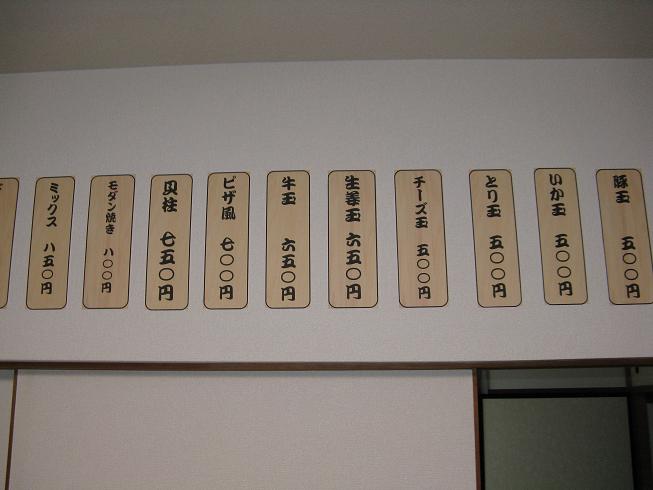 豚玉 五〇〇円
いか玉 五〇〇円
とり玉 五〇〇円
チーズ玉 五〇〇円
生姜玉 六五〇円
牛玉 六五〇円
ピザ風 七〇〇円
貝柱 七五〇円
モダン焼き 八〇〇円
ミックス 八五〇円